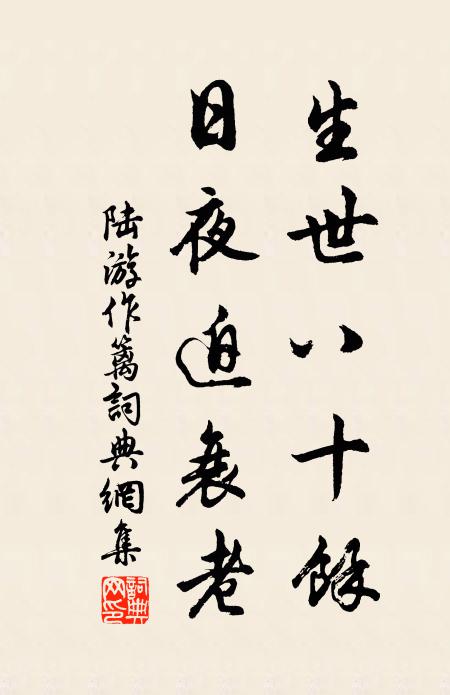 生世八十餘
日夜迫衰老
陸游作篱詞典網集
詞典網印